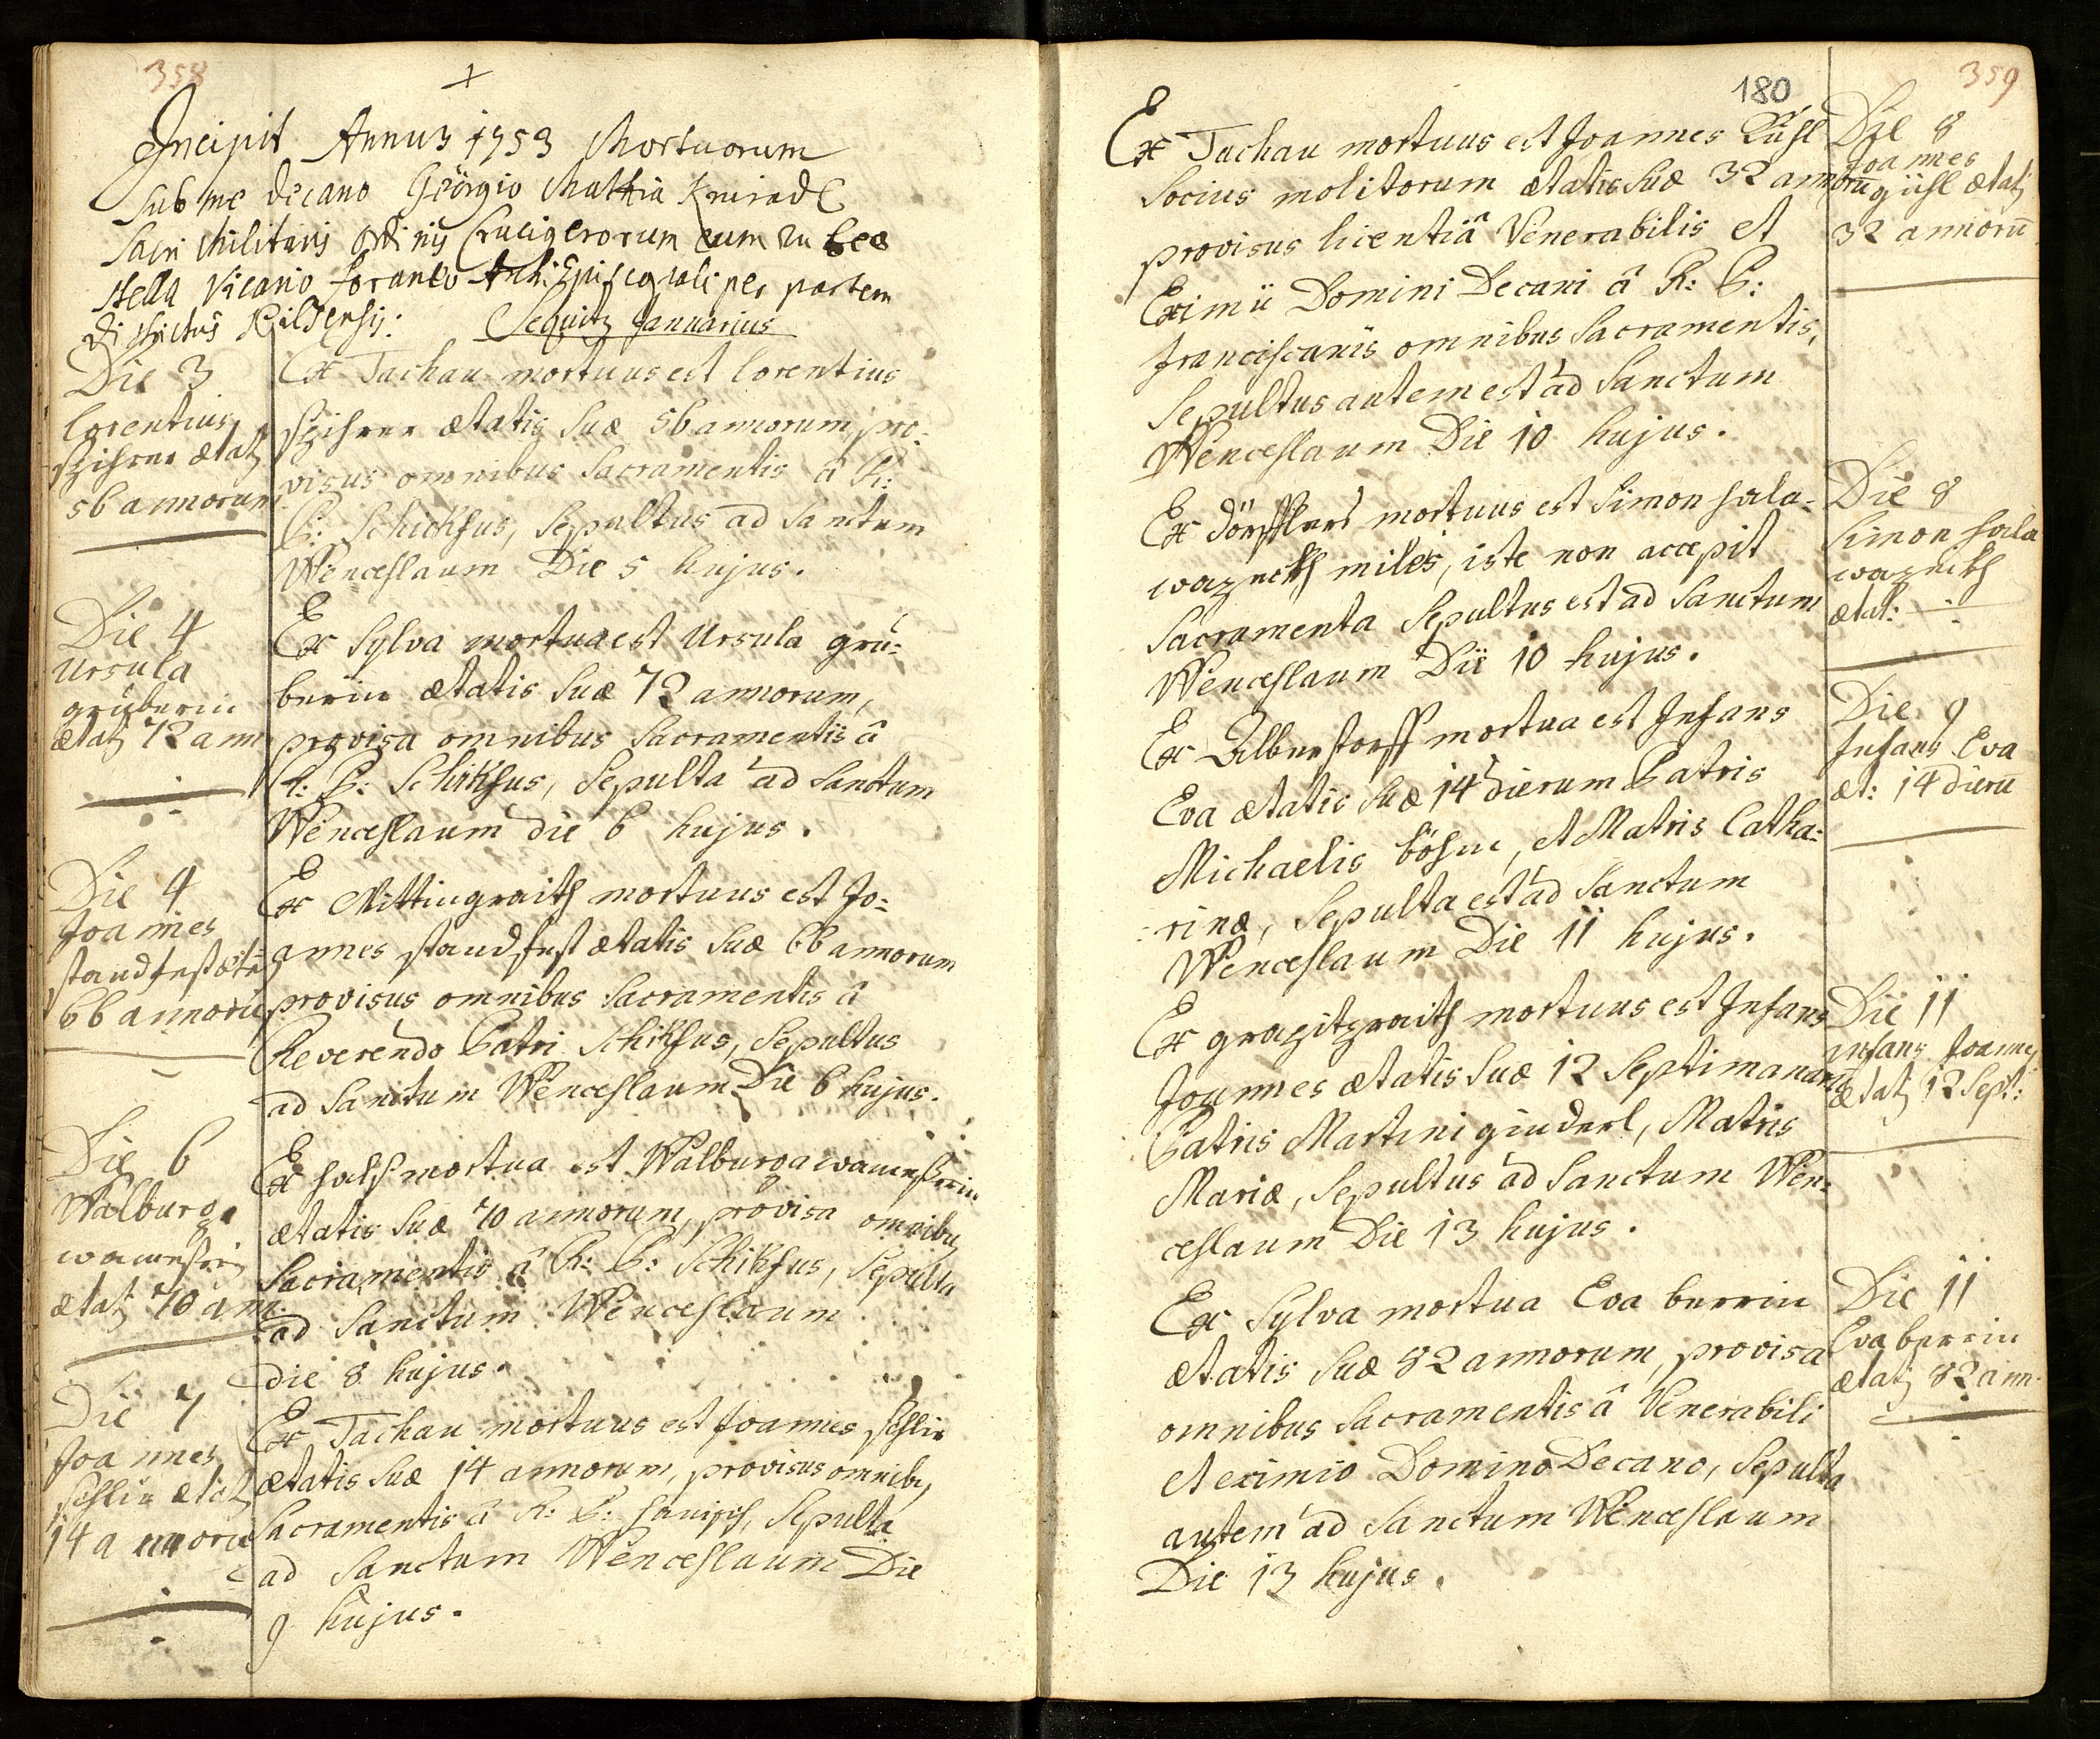 358
+
Incipit Annus 1753 Mortuorum
sub me Decano Geörgio Mathia
Sacri Militaris Ordinis Crucigerorum cum
stella Vicario foraneo per partem
districtus Pilsensis: Sequitur Januarius
Die 3
lorentius
ætatz
56 annorum
Ex Tachau mortuus est lorentius
ætatis suæ 56 annorum, pro=
visus omnibus Sacramentis â R:
P: Schickfus, Sepultus ad Sanctum
Wenceslaum Die 5 hujus.
Die 4
Ursula
grüberin
ætatz 72 ann
Ex Sylva mortua est Ursula grü=
berin ætatis suæ 72 annorum,
provisa omnibus Sacramentis â
R: P: Schikfus, Sepulta ad Sanctum
Wenceslaum die 6 hujus.
Die 4
Joannes
standfest ætat
66 annorū
Ex Mittingraith mortuus est Jo=
annes standfest ætatis Suæ 66 annorum
provisus omnibus Sacramentis â
Reverendo Patri Schikfus, Sepultus
ad Sanctum Wenceslaum Die 6 hujus.
Die 6
Walburga
ætatz 70 ann.
Ex hals mortua est Walburga
ætatis Suæ 70 annorum, provisa omnibuz
Sacramentis â R: P: Schikfus, Sepulta
ad Sanctum Wenceslaum
die 8 hujus.
Die 7
Joannes
ætatz
14 annorū
Ex Tachau mortuus est Joannes
ætatis Suæ 14 annorum, provisus omnibz
Sacramentis â R: P: Sepulta
ad Sanctum Wenceslaum Die
9 hujus.
180
359
Ex Tachau mortuus est Joannes
Socius molitorum ætatis Suæ 32 annorū
provisus licentiâ Venerabilis et
Eximii Domini Decani â R: P:
franciscanis omnibus Sacramentis,
Sepultus autem est ad Sanctum
Wenceslaum Die 10 hujus.
Die 8
Joannes
ætatz
32 annorū
Ex dörfflers mortuus est Simon hala=
waznikh miles, iste non accepit
Sacramenta Sepultus est ad Sanctum
Wenceslaum Die 10 hujus.
Die 8
Simon hala
waznikh
ætat: -
Ex Alberstorff mortua est Infans
Eva ætatis Suæ 14 dierum Patris
Michaelis böhm, et Matris Catha=
=rinæ, Sepulta est ad Sanctum
Wenceslaum Die 11 hujus.
Die 9
Infans Eva
æt: 14 dierū
Ex mortuus est Infans
Joannes ætatis Suæ 12 Septimanarū
Patris Martini ginderl, Matris
Mariæ, Sepultus ad Sanctum Wen=
ceslaum Die 13 hujus.
Die 11
Infans Joannes
ætatz 12 Sept:
Ex Sylva mortua Eva berrin
ætatis Suæ 82 annorum, provisa
omnibus Sacramentis â Venerabili
et eximio Domino Decano, Sepulta
autem ad Sanctum Wenceslaum
Die 13 hujus.
Die 11
Eva berrin
ætatz 82 ann.